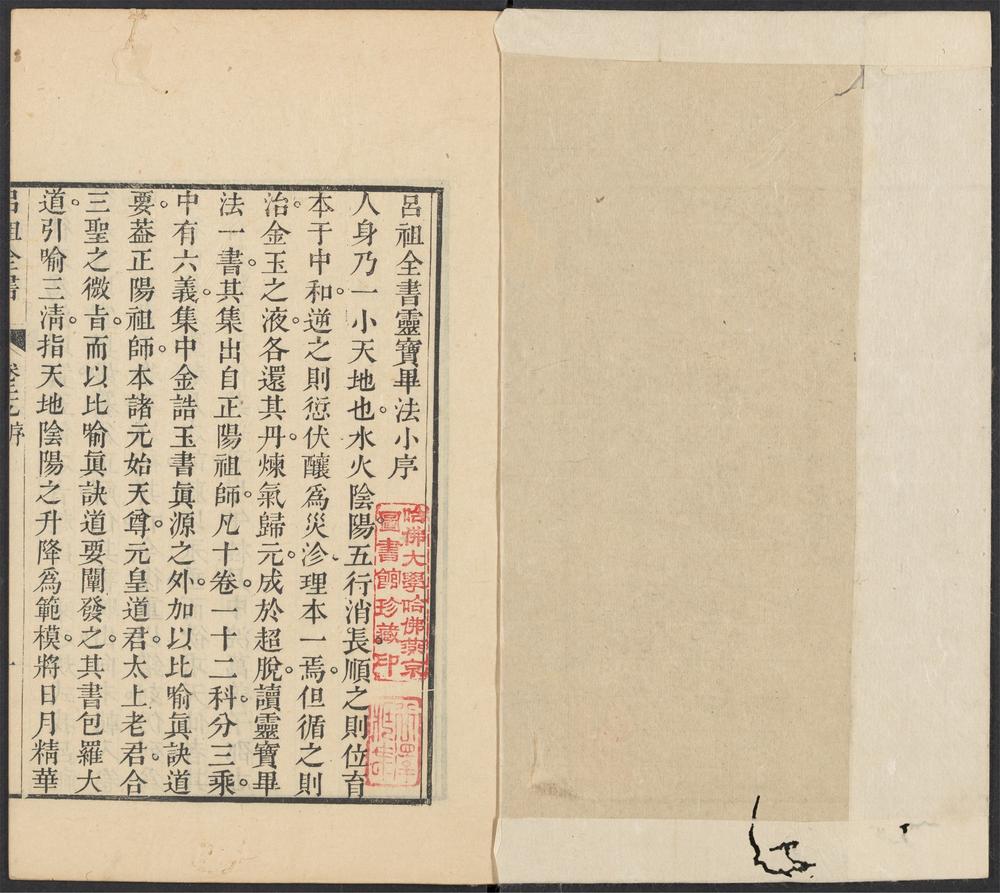 呂祖全書靈寶畢法小序
人身乃一小天地也。水火陰陽五行消長順之則位育
本于中和。逆之則愆伏釀為災沴。理本一焉。但循之則
治。金玉之液。各還其丹。煉氣歸元。成於超脫。讀靈寶畢
法一書。其集出自正陽祖師。凡十卷。一十二科。分三乘。
中有六義。集中金誥玉書眞源之外。加以比喻眞訣道
要。葢正陽祖師。本諸元始天尊。元皇道君。太上老君。合
三聖之微旨。而以比喻眞訣道要闡發之。其書包羅大
道。引喻三清。指天地陰陽之升降為範模。將日月精華
呂祖全書
序
一
哈佛大學哈佛燕京
圖書館珍藏印